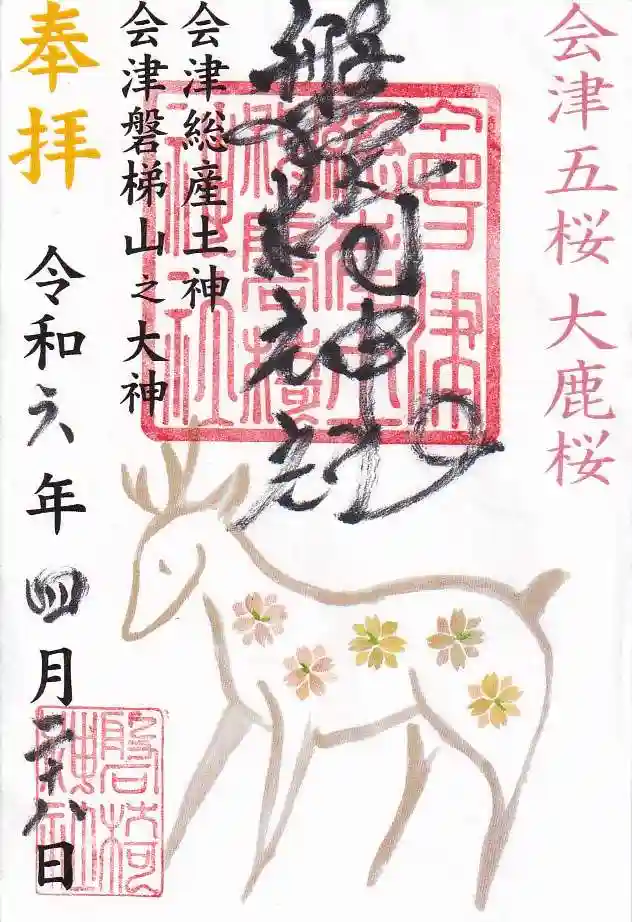 会津五桜 大鹿桜
磐椅神社
会津総産土神
会津磐梯山之大神
奉拝
令和六年四月二十八日